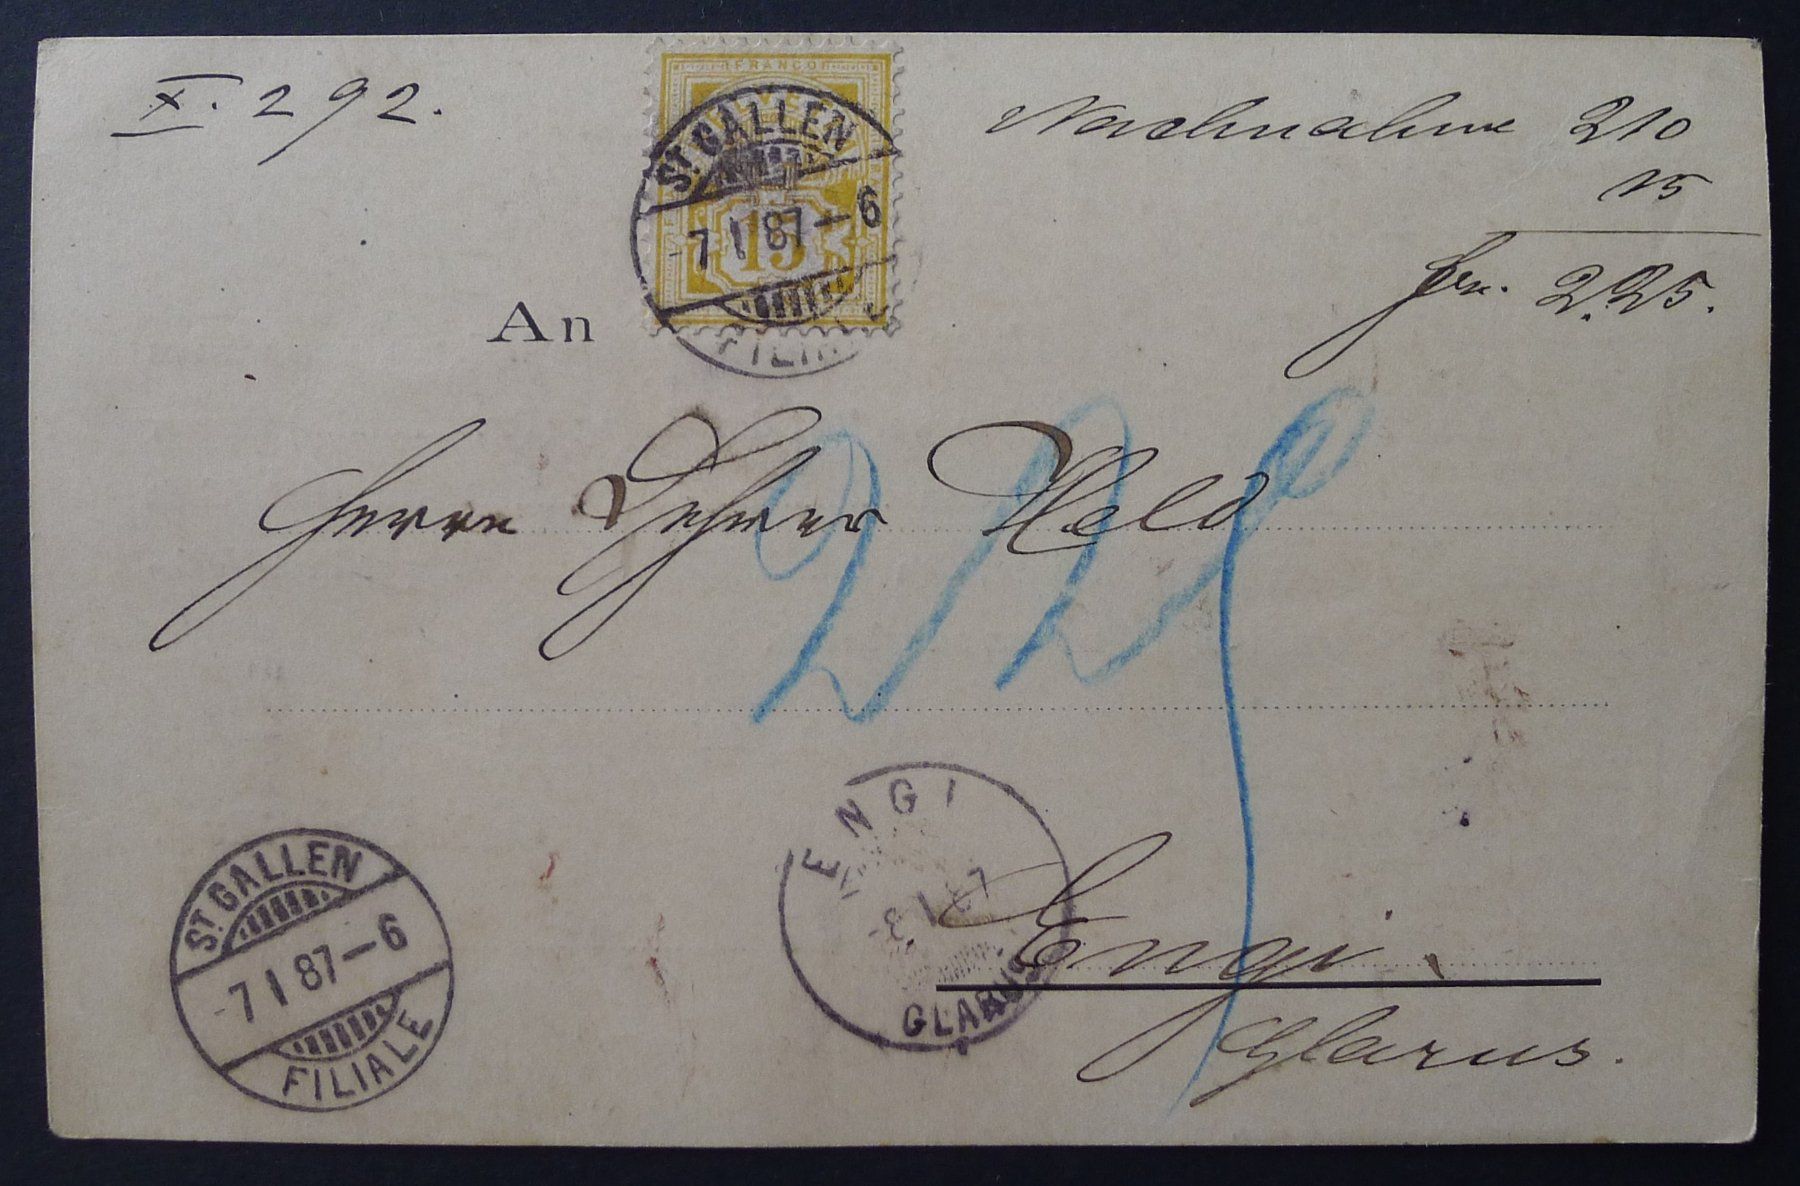 X. 292.
FRANCO
15
ST. GALLEN
-7 I 87-6
FILIALE
Nachnahme 210
15
fr. 2.25.
An
Herrn Lehrer Held
225
ST. GALLEN
-7 I 87-6
FILIALE
ENGI
-8. I 87
GLARUS
Engi.
Glarus.